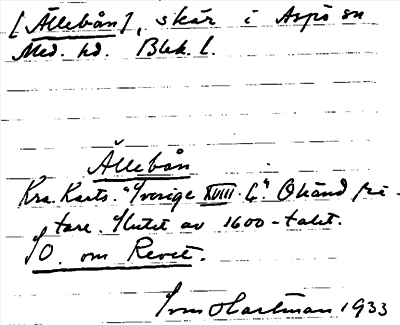 [Ällebån], skär i Aspö sn
Med. hd. Blek. l.
Ällebån
Kra. Karts. "Sverige XVIII. 4" Okänd ri-
tare. Slutet av 1600-talet.
SO. om Revet.
Sven Hartman 1933